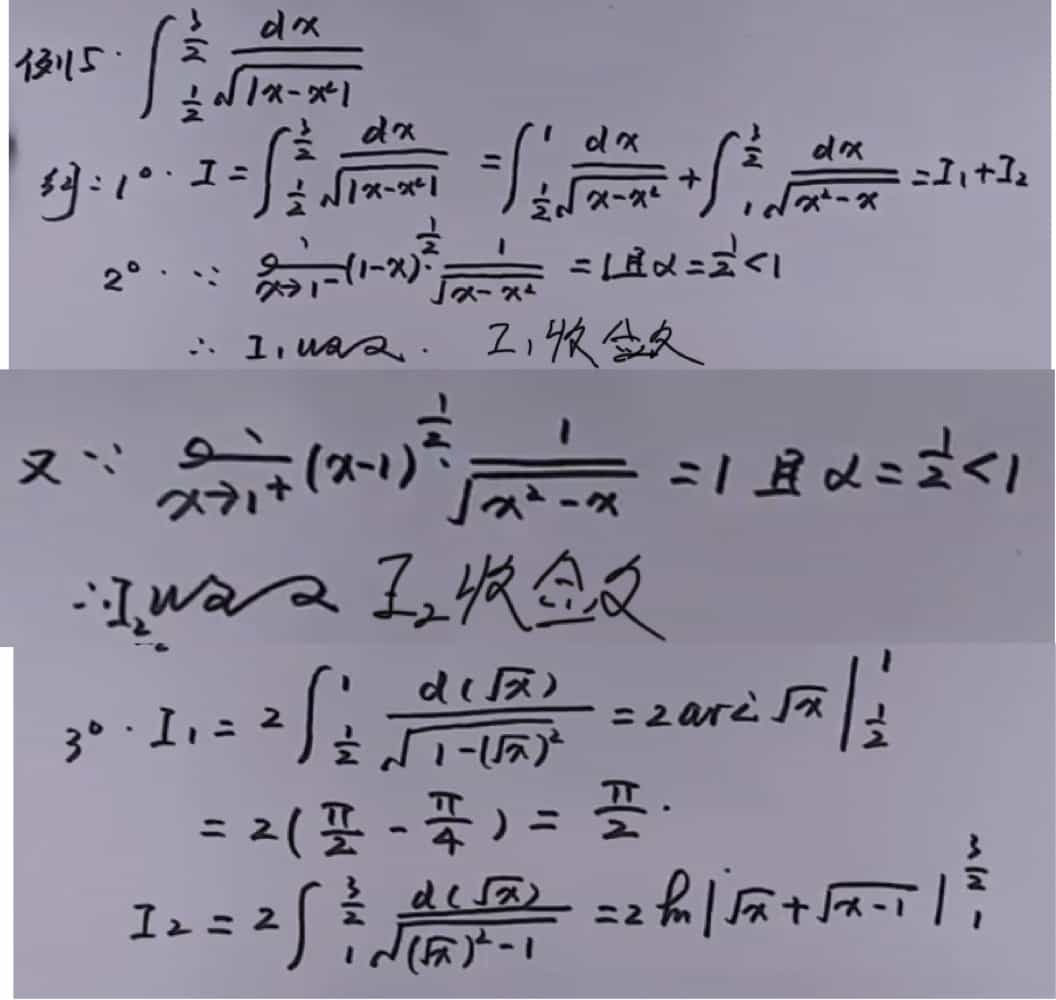 例5. ∫_{1/2}^{3/2} dx/√|x-x²|
解:1°. I = ∫_{1/2}^{3/2} dx/√|x-x²| = ∫_{1/2}^{1} dx/√(x-x²) + ∫_{1}^{3/2} dx/√(x²-x) = I₁+I₂
2°. ∵ x→1⁻ (1-x)^{1/2} · 1/√(x-x²) = 1 且 α = 1/2 < 1
∴ I₁ . I₁收敛
又∵ x→1⁺ (x-1)^{1/2} · 1/√(x²-x) = 1 且 α = 1/2 < 1
∴ I₂ I₂收敛
3°. I₁ = 2∫_{1/2}^{1} d(√x)/√(1-(√x)²) = 2 √x |_{1/2}^{1}
= 2(π/2 - π/4) = π/2.
I₂ = 2∫_{1}^{3/2} d(√x)/√((√x)²-1) = 2 ln|√x+√(x-1)| |_{1}^{3/2}